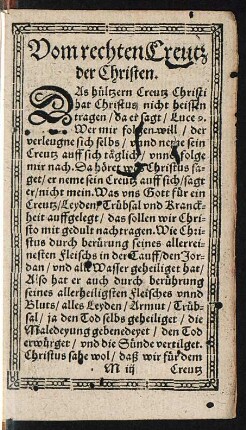 Vom rechten Creutz
der Christen.
DAs hültzern Creutz Christi
hat Christus nicht heissen
tragen / da er sagt / Luce 9.
Wer mir folgen will / der
verleugne sich selbs / und neme sein
Creutz auff sich täglich / vnnd folge
mir nach. Da höret Christus sa-
get / er neme sein Creutz auff sich / sagt
er / nicht mein. Was vns Gott für ein
Creutz / Leyden / Trübsal vnd Kranck-
heit aufflegt / das sollen wir Chri-
sto mit gedult nachtragen. Wie Chri-
stus durch berürung seines allerrei-
nesten Fleischs in der Tauff / den Jor-
dan / vnd alle Wasser geheiliget hat /
Also hat er auch durch berührung
seines allerheiligsten Fleisches vnnd
Bluts / alles Leyden / Armut / Trüb-
sal / ja den Tod selbs geheiliget / die
Maledeyung gebenedeyet / den Tod
erwürget / vnd die Sünde vertilget.
Christus sahe wol / daß wir für dem
M iij Creutz